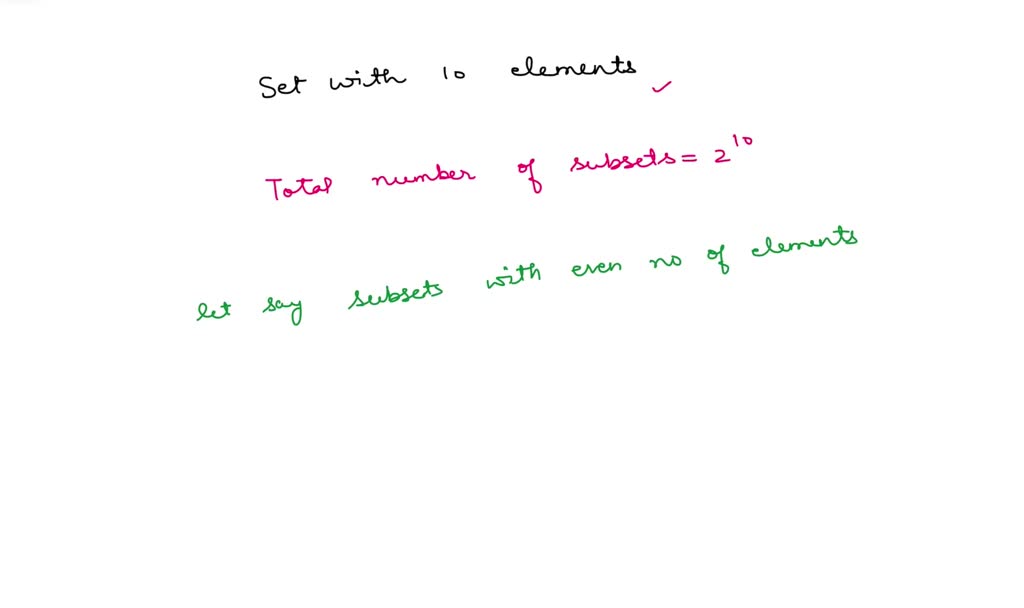 Set with 10 elements
Total number of subsets = 2^10
let say subsets with even no of elements